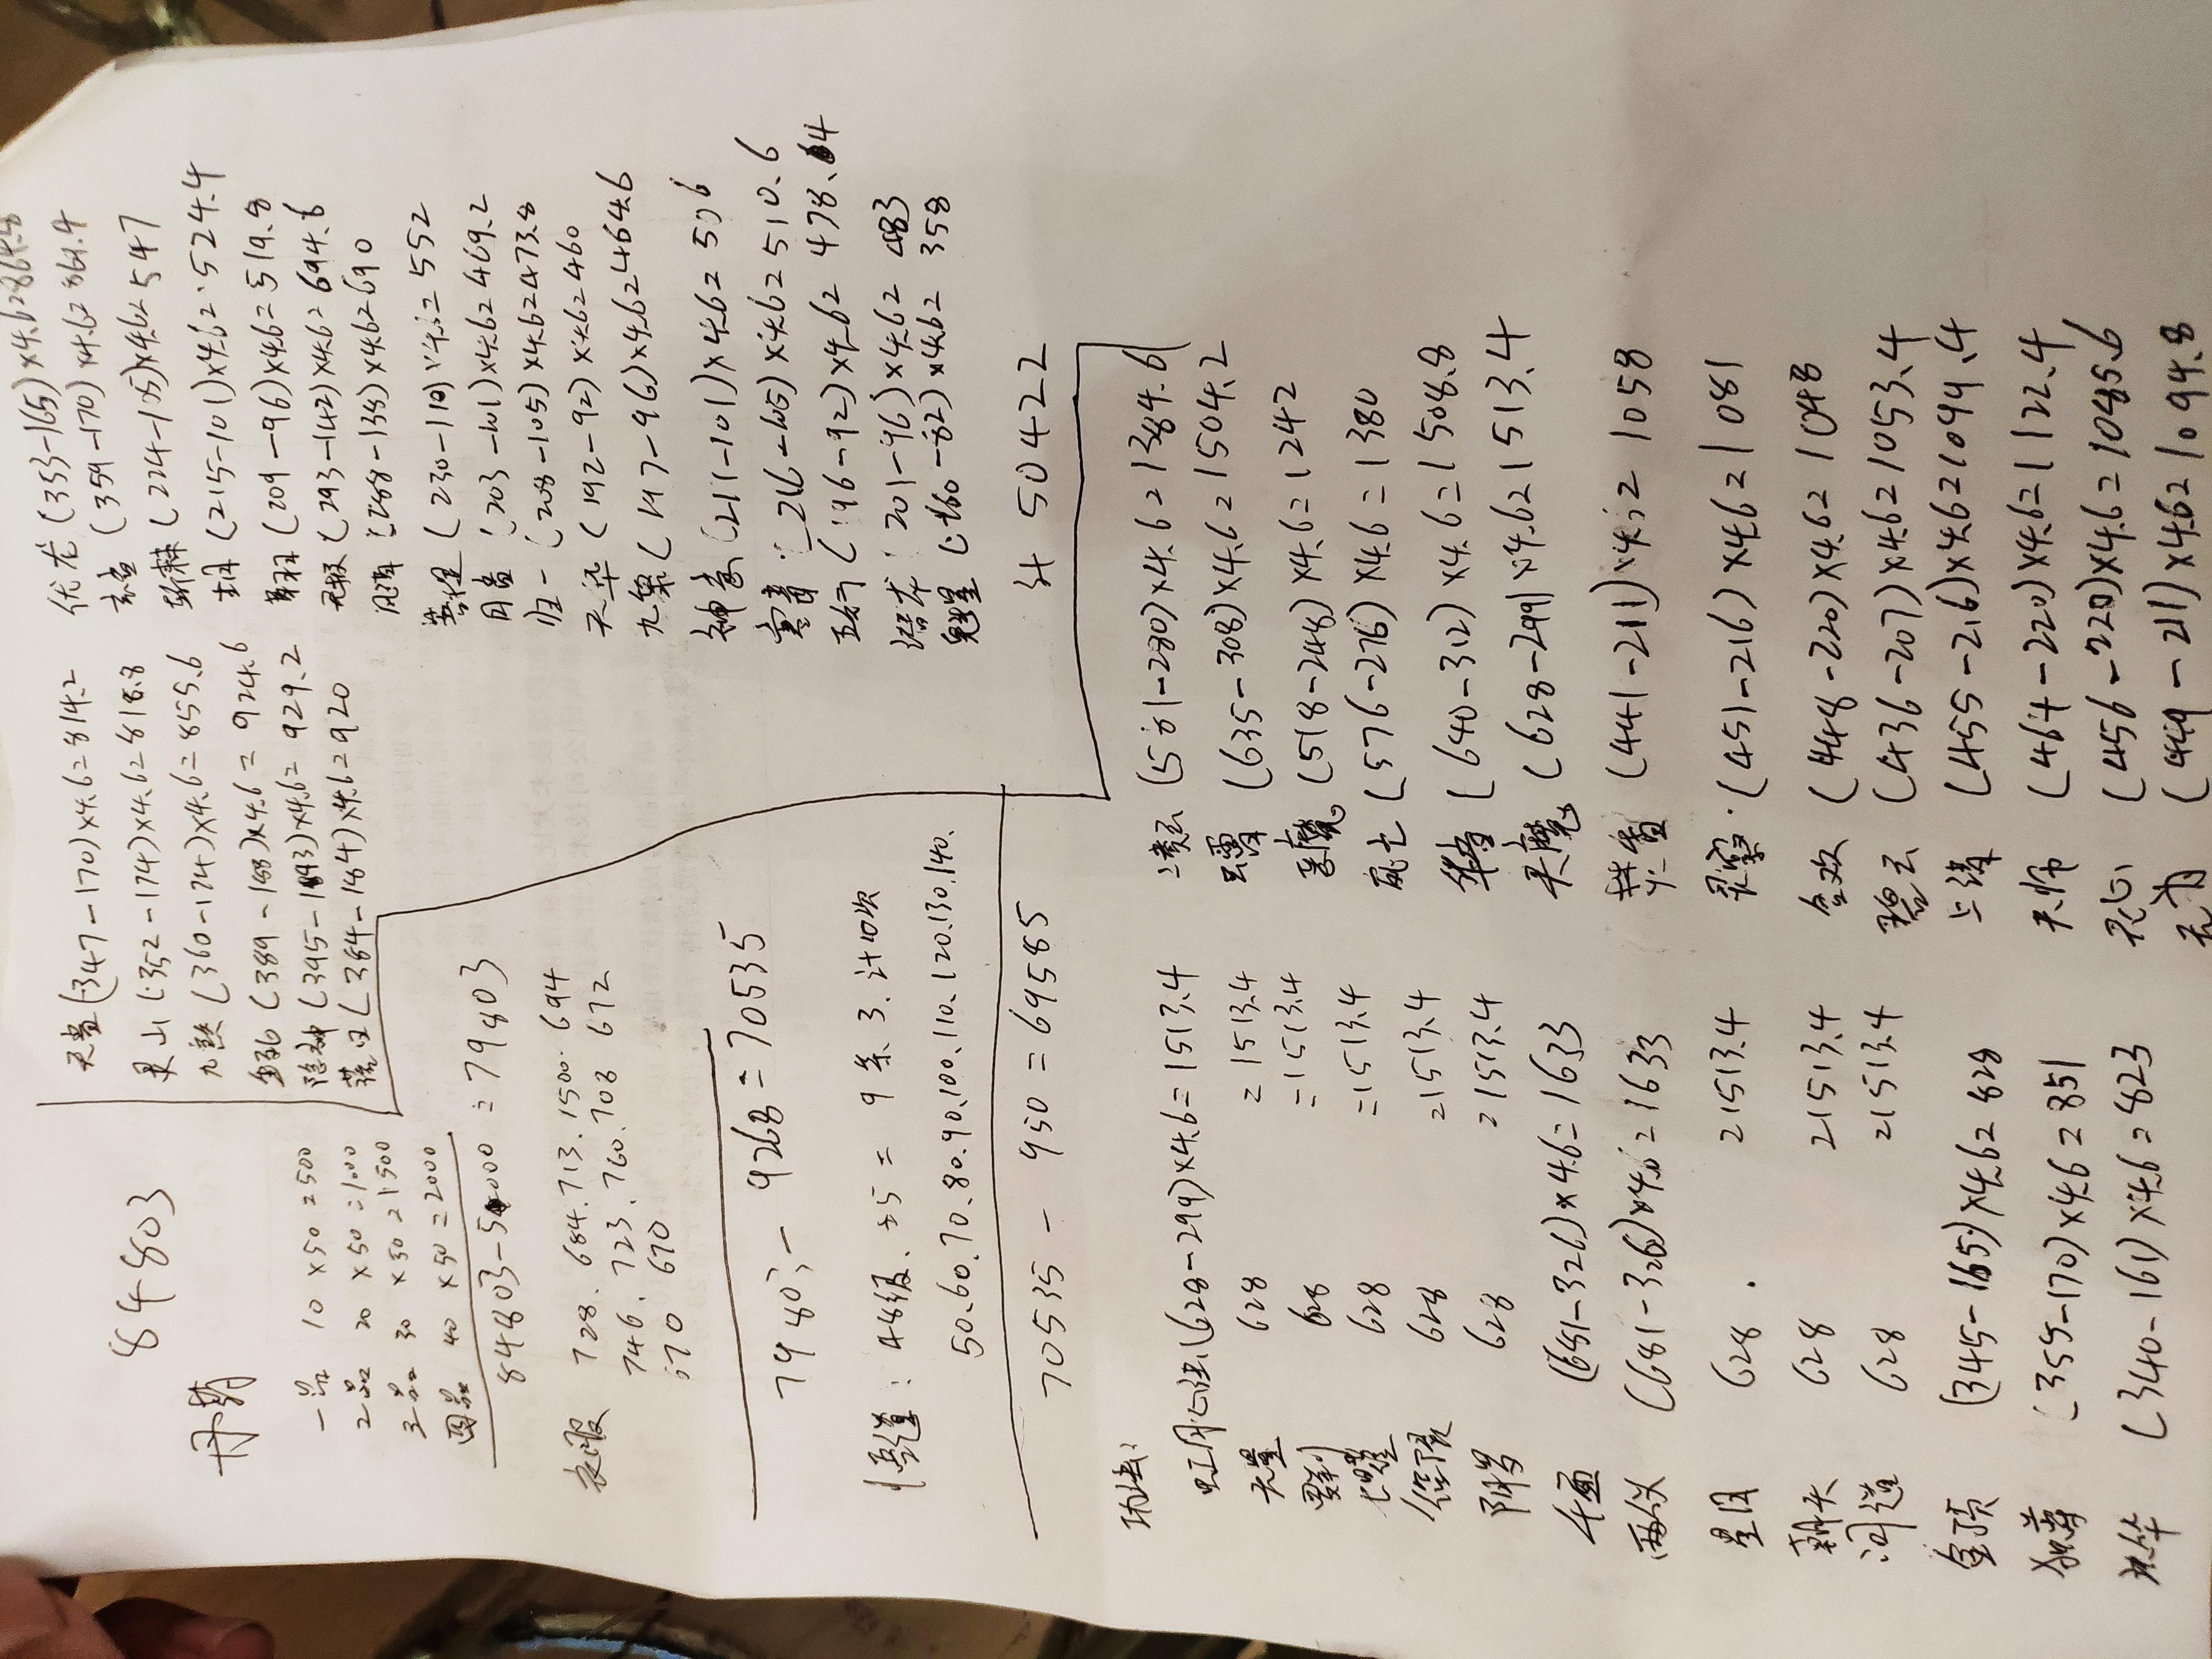 84803
丹药
一品 10×50=500
2品 20×50=1000
3品 30×50=1500
四品 40×50=2000
84803-5000=79803
衣服 728.684.713.1500.694
746.723.760.708 672
670 670
79803-9268=70535
悟道:48级.÷5=9条.3.计10次
50.60.70.80.90.100.110.120.130.140.
70535-950=69585
功法:
(628-299)×4.6=1513.4
628 =1513.4
628 =1513.4
628 =1513.4
628 =1513.4
628 =1513.4
千面 (681-326)×4.6=1633
两仪 (681-326)×4.6=1633
星月 628 =1513.4
朝天 628 =1513.4
问道 628 =1513.4
金顶 (345-165)×4.6=828
(355-170)×4.6=851
(340-161)×4.6=823
(347-170)×4.6=814.2
灵山 (352-174)×4.6=818.8
九 (360-174)×4.6=855.6
(389-188)×4.6=924.6
隐神 (395-193)×4.6=929.2
(384-184)×4.6=920
优 (353-165)×4.6=864.8
(359-170)×4.6=869.4
(224-105)×4.6=547
(215-101)×4.6=524.4
(209-96)×4.6=519.8
天 (293-142)×4.6=694.6
(288-138)×4.6=690
菩提 (230-110)×4.6=552
(203-101)×4.6=469.2
归一 (208-105)×4.6=473.8
天华 (192-92)×4.6=460
九 (197-96)×4.6=464.6
神 (211-101)×4.6=506
(216-105)×4.6=510.6
五行 (196-92)×4.6=478.4
(201-96)×4.6=483
魁星 (160-82)×4.6=358
计 50422
(581-280)×4.6=1384.6
(635-308)×4.6=1504.2
(518-248)×4.6=1242
(576-276)×4.6=1380
(640-312)×4.6=1508.8
天魔 (628-299)×4.6=1513.4
(441-211)×4.6=1058
(451-216)×4.6=1081
(448-220)×4.6=1048
碧云 (436-207)×4.6=1053.4
上清 (455-216)×4.6=1099.4
天师 (464-220)×4.6=1122.4
(456-220)×4.6=1085.6
(449-211)×4.6=1094.8